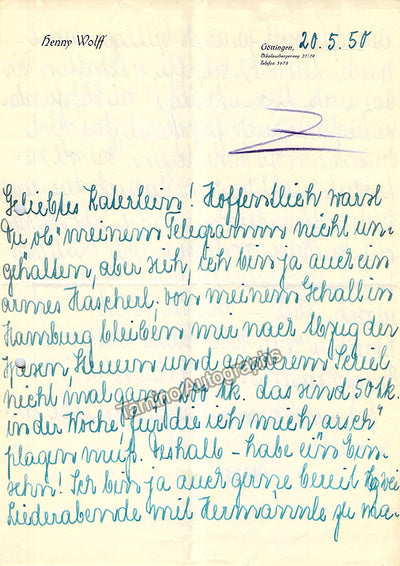 Henny Wolff
Göttingen, 20.5.50
Nikolausbergerweg
Telefon
Geliebtes Katerlein! Hoffentlich warst
Du ob meinem Telegramm nicht un-
gehalten, aber sieh, ich bin ja auch ein
armes Hascherl; von meinem Gehalt in
Hamburg bleiben mir nach Abzug der
Spesen, Steuern und anderem
nicht mal ganz 200 Mk. das sind 50 Mk.
in der Woche, für die ich mich arsch
plagen muß. Deshalb – habe ein Ein-
sehn! Ich bin ja auch gerne bereit zwei
Liederabende mit Hermännle zu ma-
Tamino Autographs